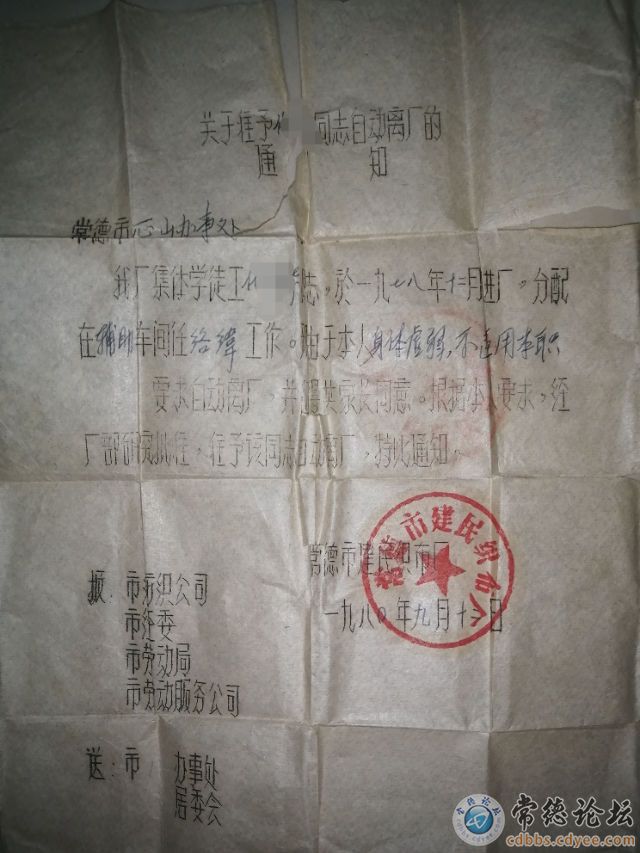 关于准予 同志自动离厂的
通 知
常德市芷山办事处
我厂集体学徒工 同志。於一九七八年十二月进厂。分配
在辅助车间任络纬工作。由于本人身体虚弱,不适用本职
要求自动离厂,并 其家长同意。根据本人要求,经
厂部研究批准,准予该同志自动离厂,特此通知。
常德市建民织布厂
一九八〇年九月十六日
常德市建民织布厂
报:市纺织公司
市经委
市劳动局
市劳动服务公司
送:市 办事处
居委会
常德论坛
常德论坛
cdbbs.cdyee.com